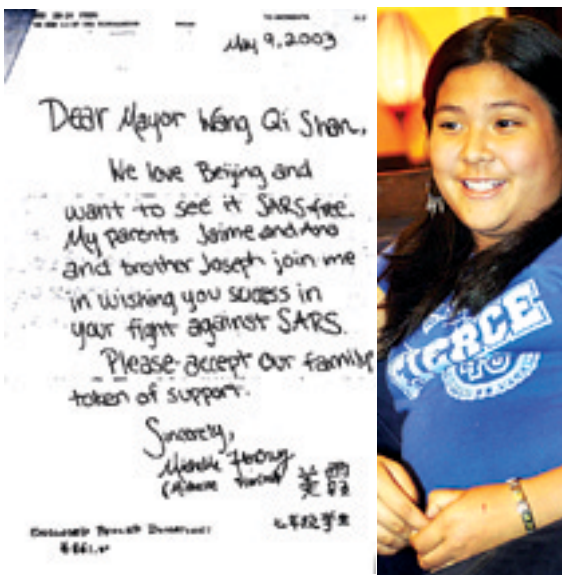 May 9, 2003
Dear Mayor Wang Qi Shan,
We love Beijing and
want to see it SARS-free.
My parents Jaime and Ana
and brother Joseph join me
in wishing you sucess in
your fight against SARS.
Please accept our family
token of support.
Sincerely,
Michelle
(Michelle
七年级学生
FIERCE